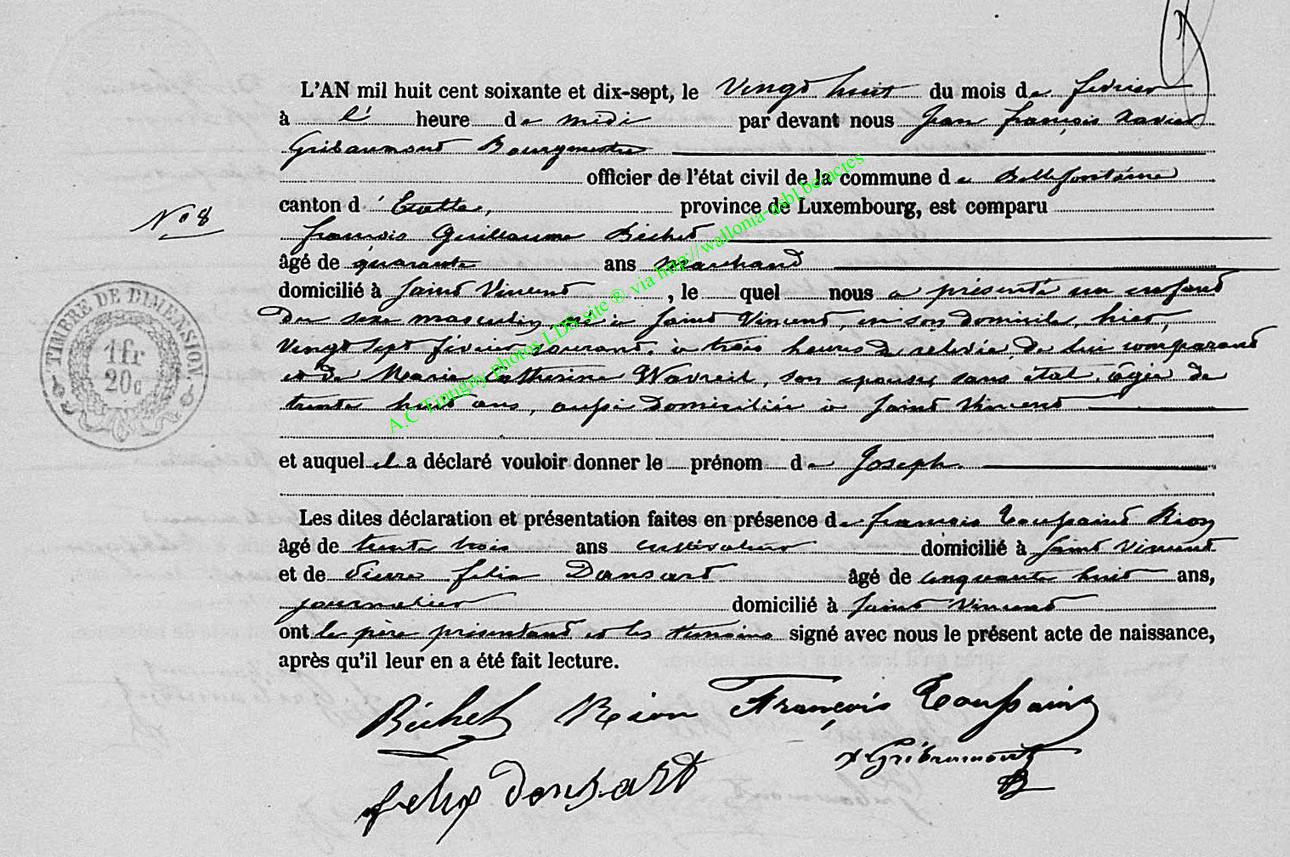 L'AN mil huit cent soixante et dix-sept, le Vingt huit du mois de février
à l' heure de midi par devant nous Jean François Xavier
Gribaumont Bourgmestre
officier de l'état civil de la commune de Bellefontaine
canton d'Etalle, province de Luxembourg, est comparu
N° 8
françois Guillaume Bichet
âgé de quarante ans marchand
domicilié à Saint Vincent, le quel nous a présenté un enfant
du sexe masculin, né à Saint Vincent, en son domicile, hier,
vingt sept février courant, à trois heures de relevée, de lui comparant
et de Marie Catherine Wavreil, son épouse, sans état, âgée de
trente huit ans, aussi domiciliée à Saint Vincent
et auquel il a déclaré vouloir donner le prénom de Joseph.
Les dites déclaration et présentation faites en présence de françois Toussaint Rion
âgé de trente trois ans cultivateur domicilié à Saint Vincent
et de Pierre félix Dansart âgé de cinquante huit ans,
journalier domicilié à Saint Vincent
ont le père présentant et les témoins signé avec nous le présent acte de naissance,
après qu'il leur en a été fait lecture.
Bichet Rion François Toussaint
félix dansart
Gribaumont
TIMBRE DE DIMENSION.
1fr
20c
A.C Tintigny photos LDB site ® via http://wallonia-debl.be/actes